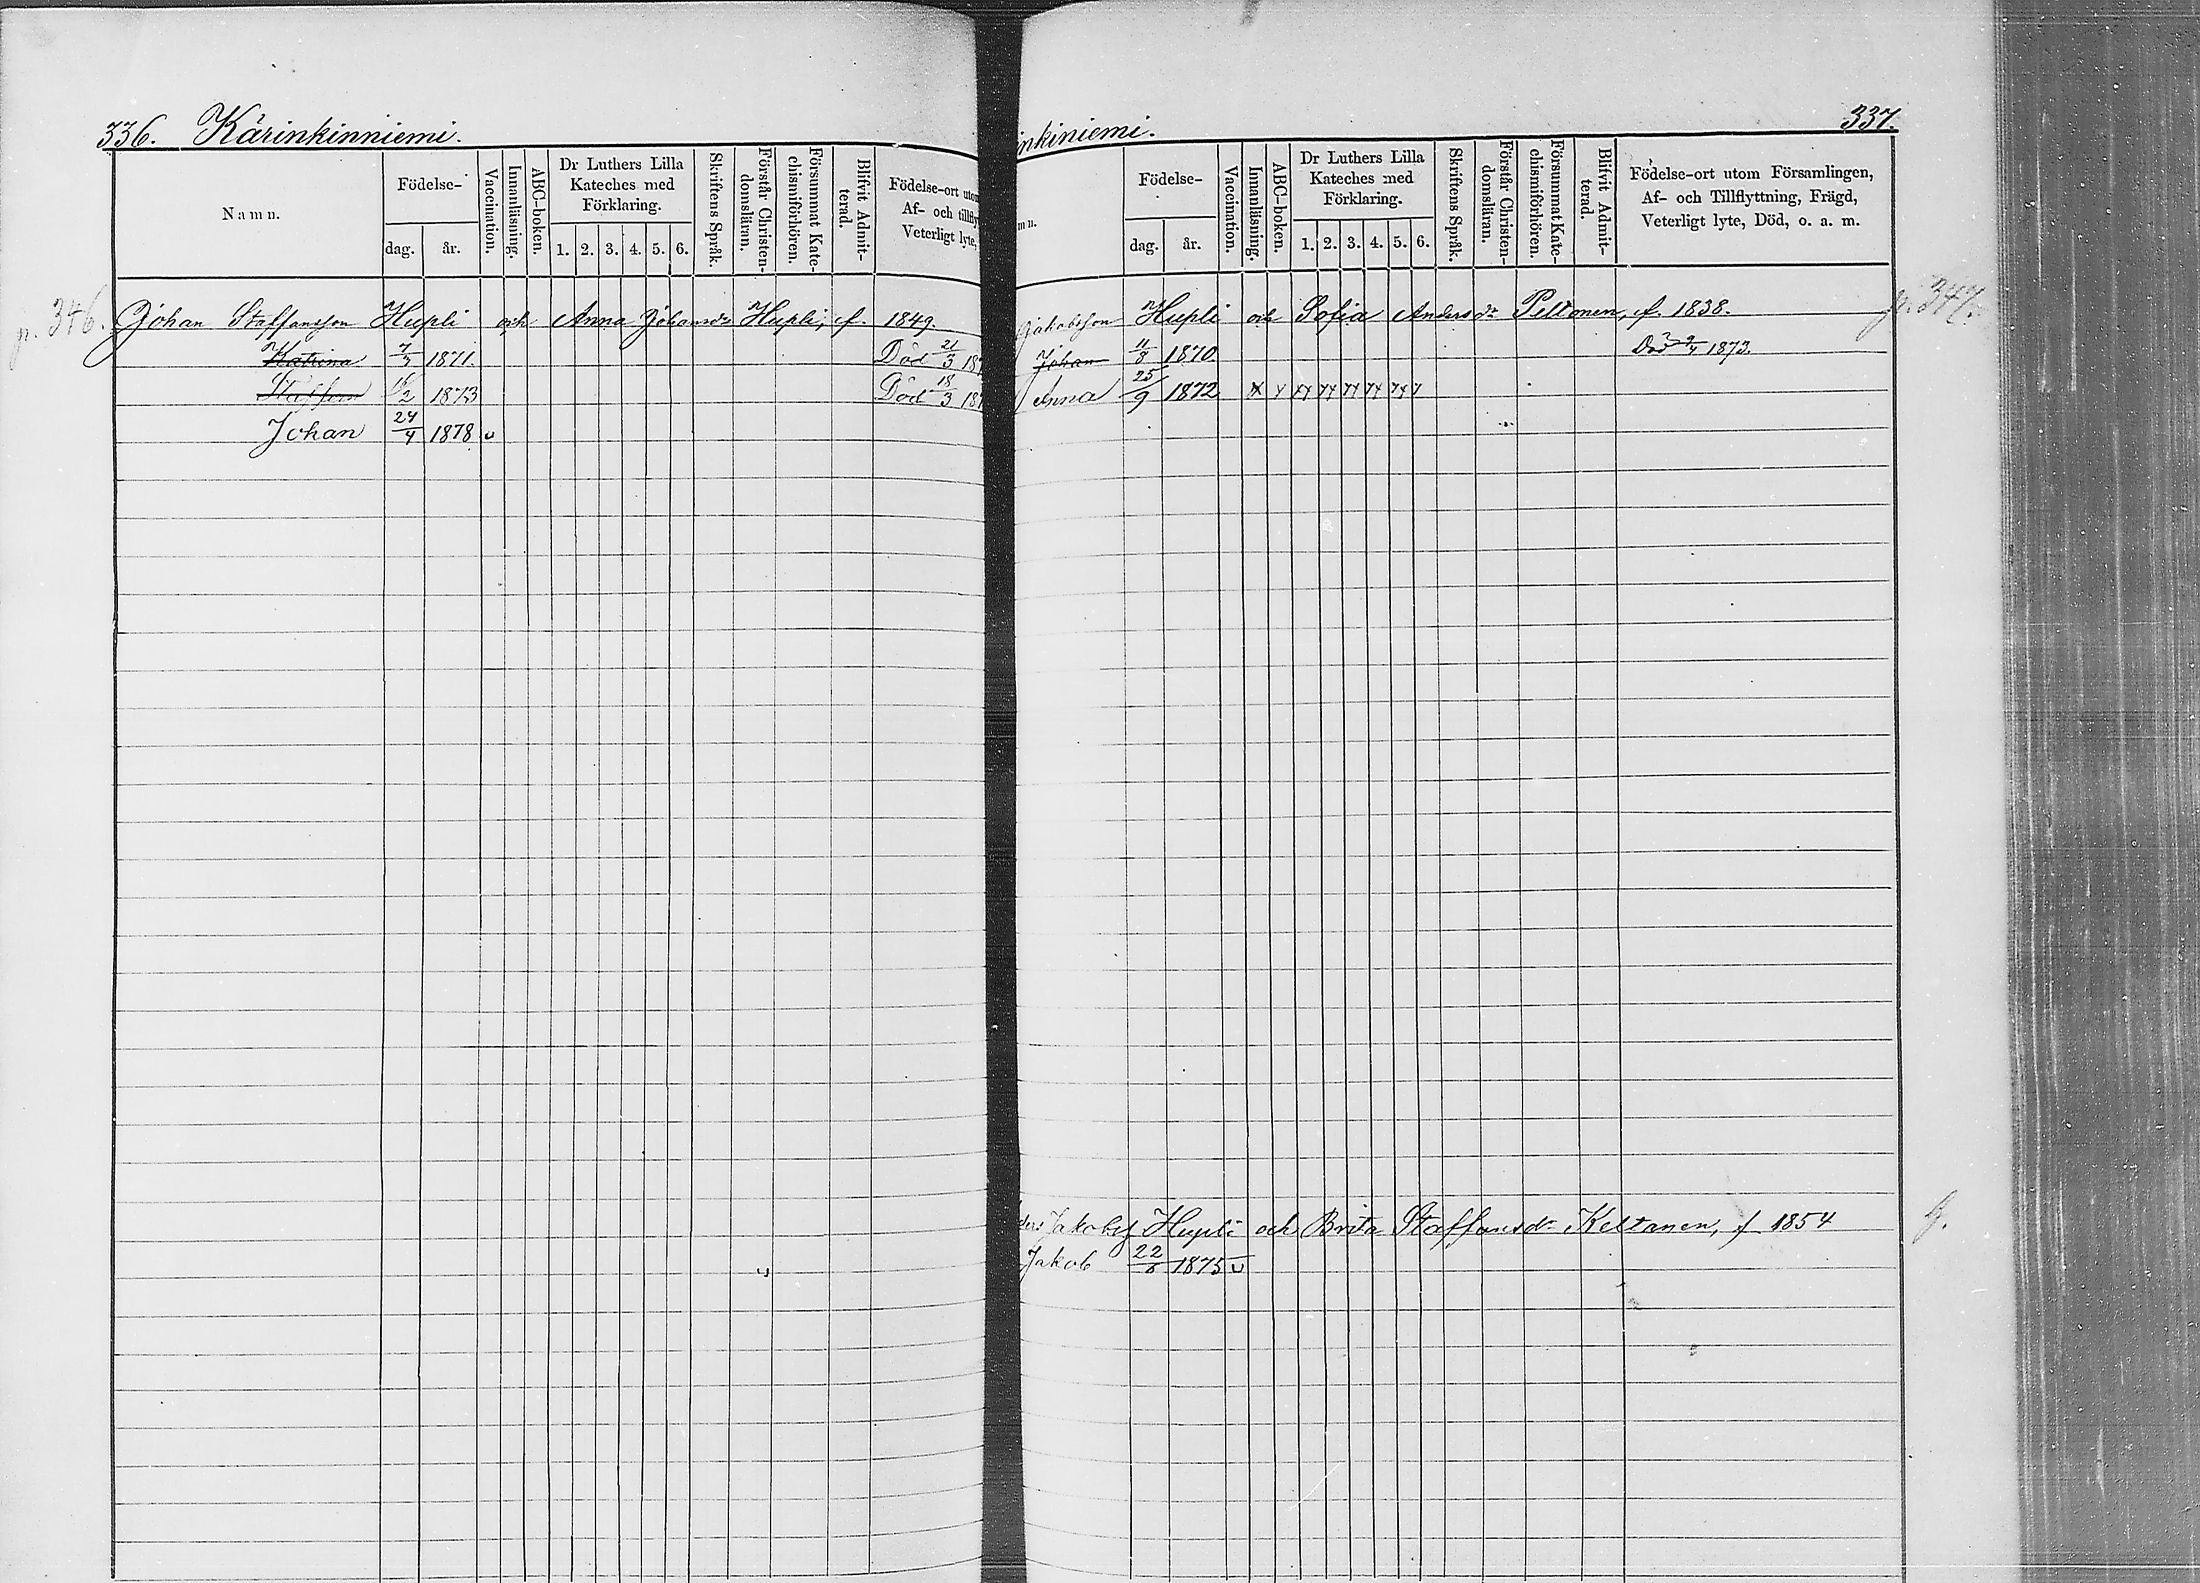 336. Kärinkinniemi.
Namn.
Födelse-
dag.
år.
Vaccination.
Innanläsning.
ABC-boken.
Dr Luthers Lilla Kateches med Förklaring.
1. 2. 3. 4. 5. 6.
Skriftens Språk.
Förstår Christendomsläran.
Försummat Katechismiförhören.
Blifvit Admitterad.
Födelse-ort utom
Af- och tillfly
Veterligt lyte,
p. 346. Johan Staffansson Hupli och Anna Johansdr Hupli, f. 1849.
Katrina 7/3 1871. Död 21/3 187
Staffan 16/2 1873 Död 18/3 187
Johan 24/4 1878 v
inkiniemi. 337.
mn.
Födelse-
dag.
år.
Vaccination.
Innanläsning.
ABC-boken.
Dr Luthers Lilla Kateches med Förklaring.
1. 2. 3. 4. 5. 6.
Skriftens Språk.
Förstår Christendomsläran.
Försummat Katechismiförhören.
Blifvit Admitterad.
Födelse-ort utom Församlingen,
Af- och Tillflyttning, Frägd,
Veterligt lyte, Död, o. a. m.
Jakobsson Hupli och Sofia Andersdr Peltonen, f. 1838. p. 347.
Johan 11/8 1870 Död 1873.
Anna 25/9 1872
ders Jakobsf Hupli och Brita Staffansdr Keltanen, f 1854
Jakob 22/8 1875 v